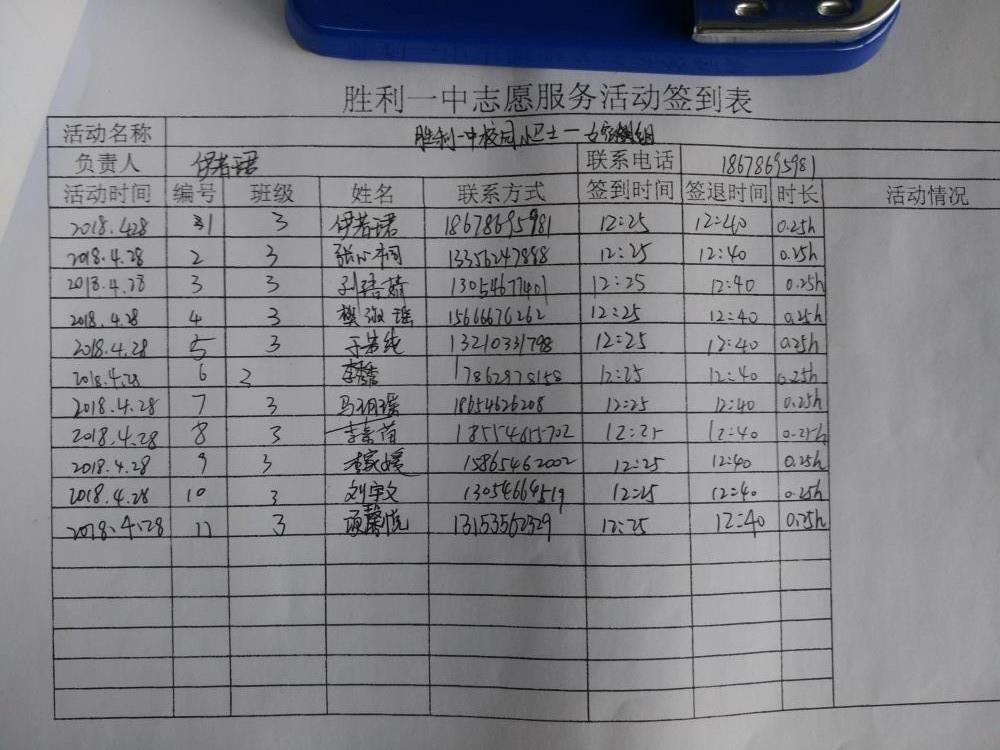 胜利一中志愿服务活动签到表
活动名称 胜利一中校园小卫士一
负责人 伊若珺 联系电话 18678695981
活动时间 编号 班级 姓名 联系方式 签到时间 签退时间 时长 活动情况
2018.428 1 3 伊若珺 18678695981 12:25 12:40 0.25h
2018.4.28 2 3 13356247888 12:25 12:40 0.25h
2018.4.28 3 3 13054677401 12:25 12:40 0.25h
2018.4.28 4 3 樊淑瑶 15666676262 12:25 12:40 0.25h
2018.4.28 5 3 13210331798 12:25 12:40 0.25h
2018.4.28 6 3 17862878158 12:25 12:40 0.25h
2018.4.28 7 3 18654626208 12:25 12:40 0.25h
2018.4.28 8 3 18554615702 12:25 12:40 0.25h
2018.4.28 9 3 15865462002 12:25 12:40 0.25h
2018.4.28 10 3 刘宇文 13054664519 12:25 12:40 0.25h
2018.4.28 11 3 13153562329 12:25 12:40 0.25h